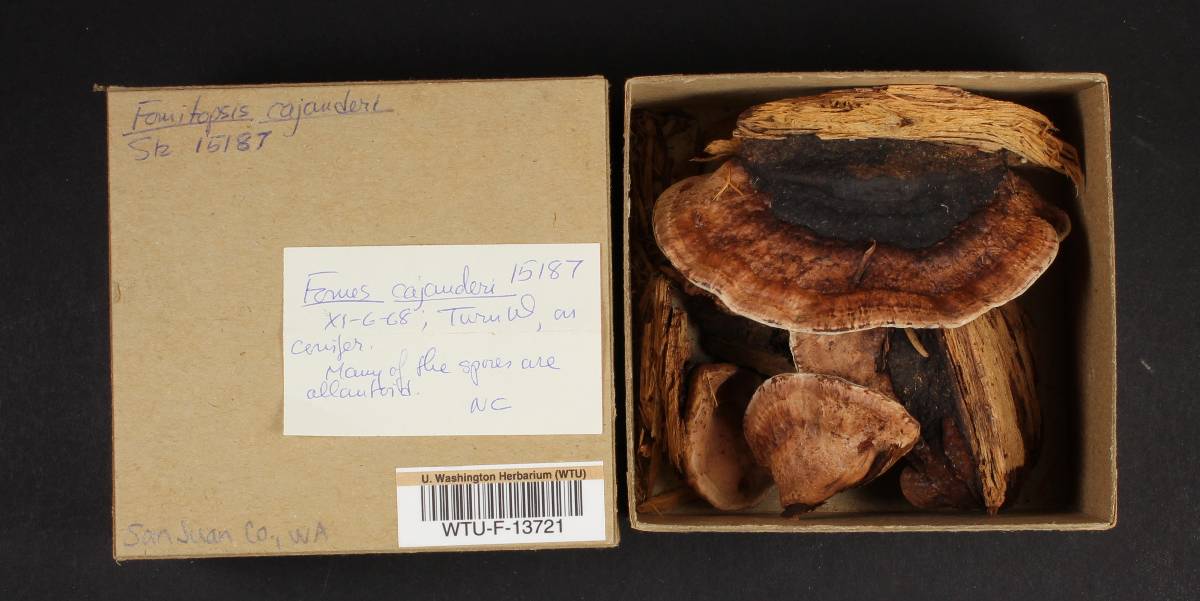 Fomitopsis cajanderi
Stz 15187
Fomes cajanderi 15187
XI-6-68; Turn Id, on
conifer.
Many of the spores are
allantoid.
NC
U. Washington Herbarium (WTU)
WTU-F-13721
San Juan Co., WA